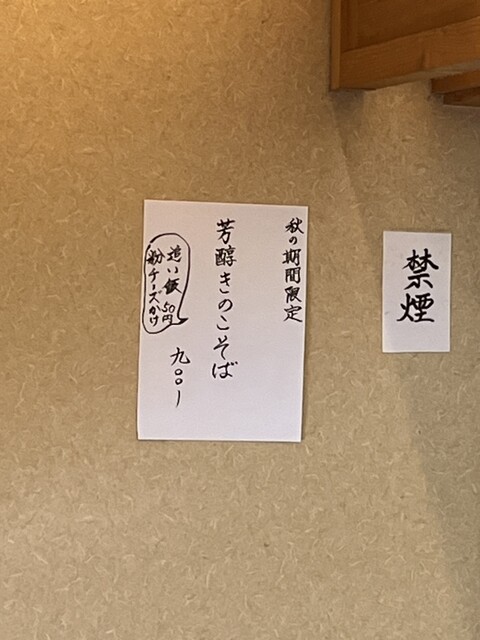 秋の期間限定
芳醇きのこそば
九〇〇ー
追い飯50円
粉チーズかけ
禁煙